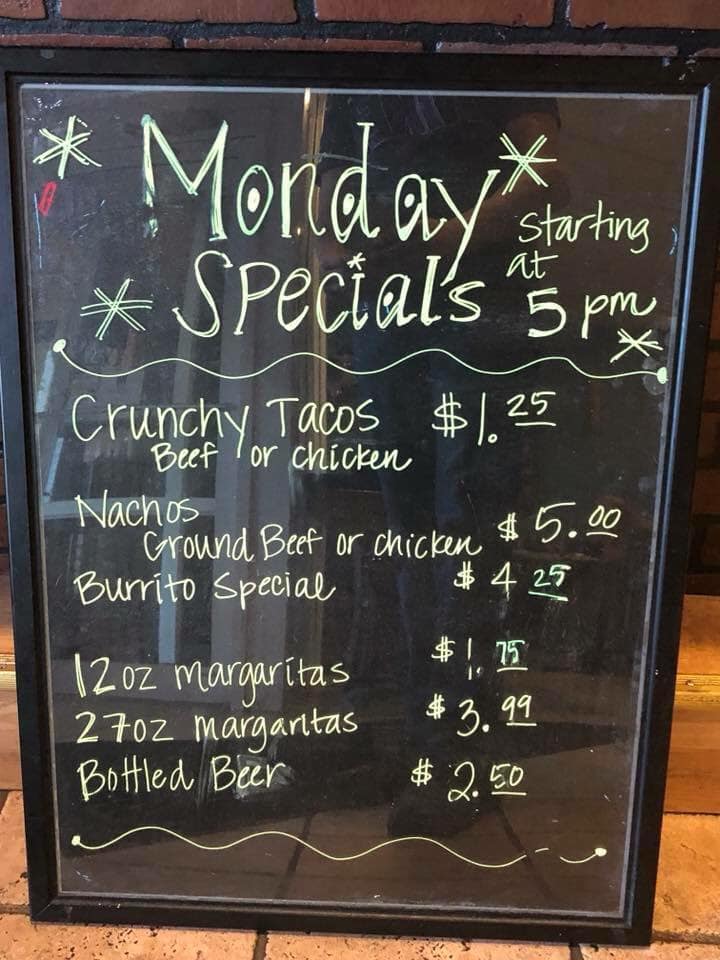 Monday
Specials
Starting
at
5 pm
Crunchy Tacos $1.25
Beef or chicken
Nachos
Ground Beef or chicken $5.00
Burrito Special $4 25
12oz margaritas $1.75
27oz margaritas $3.99
Bottled Beer $2.50